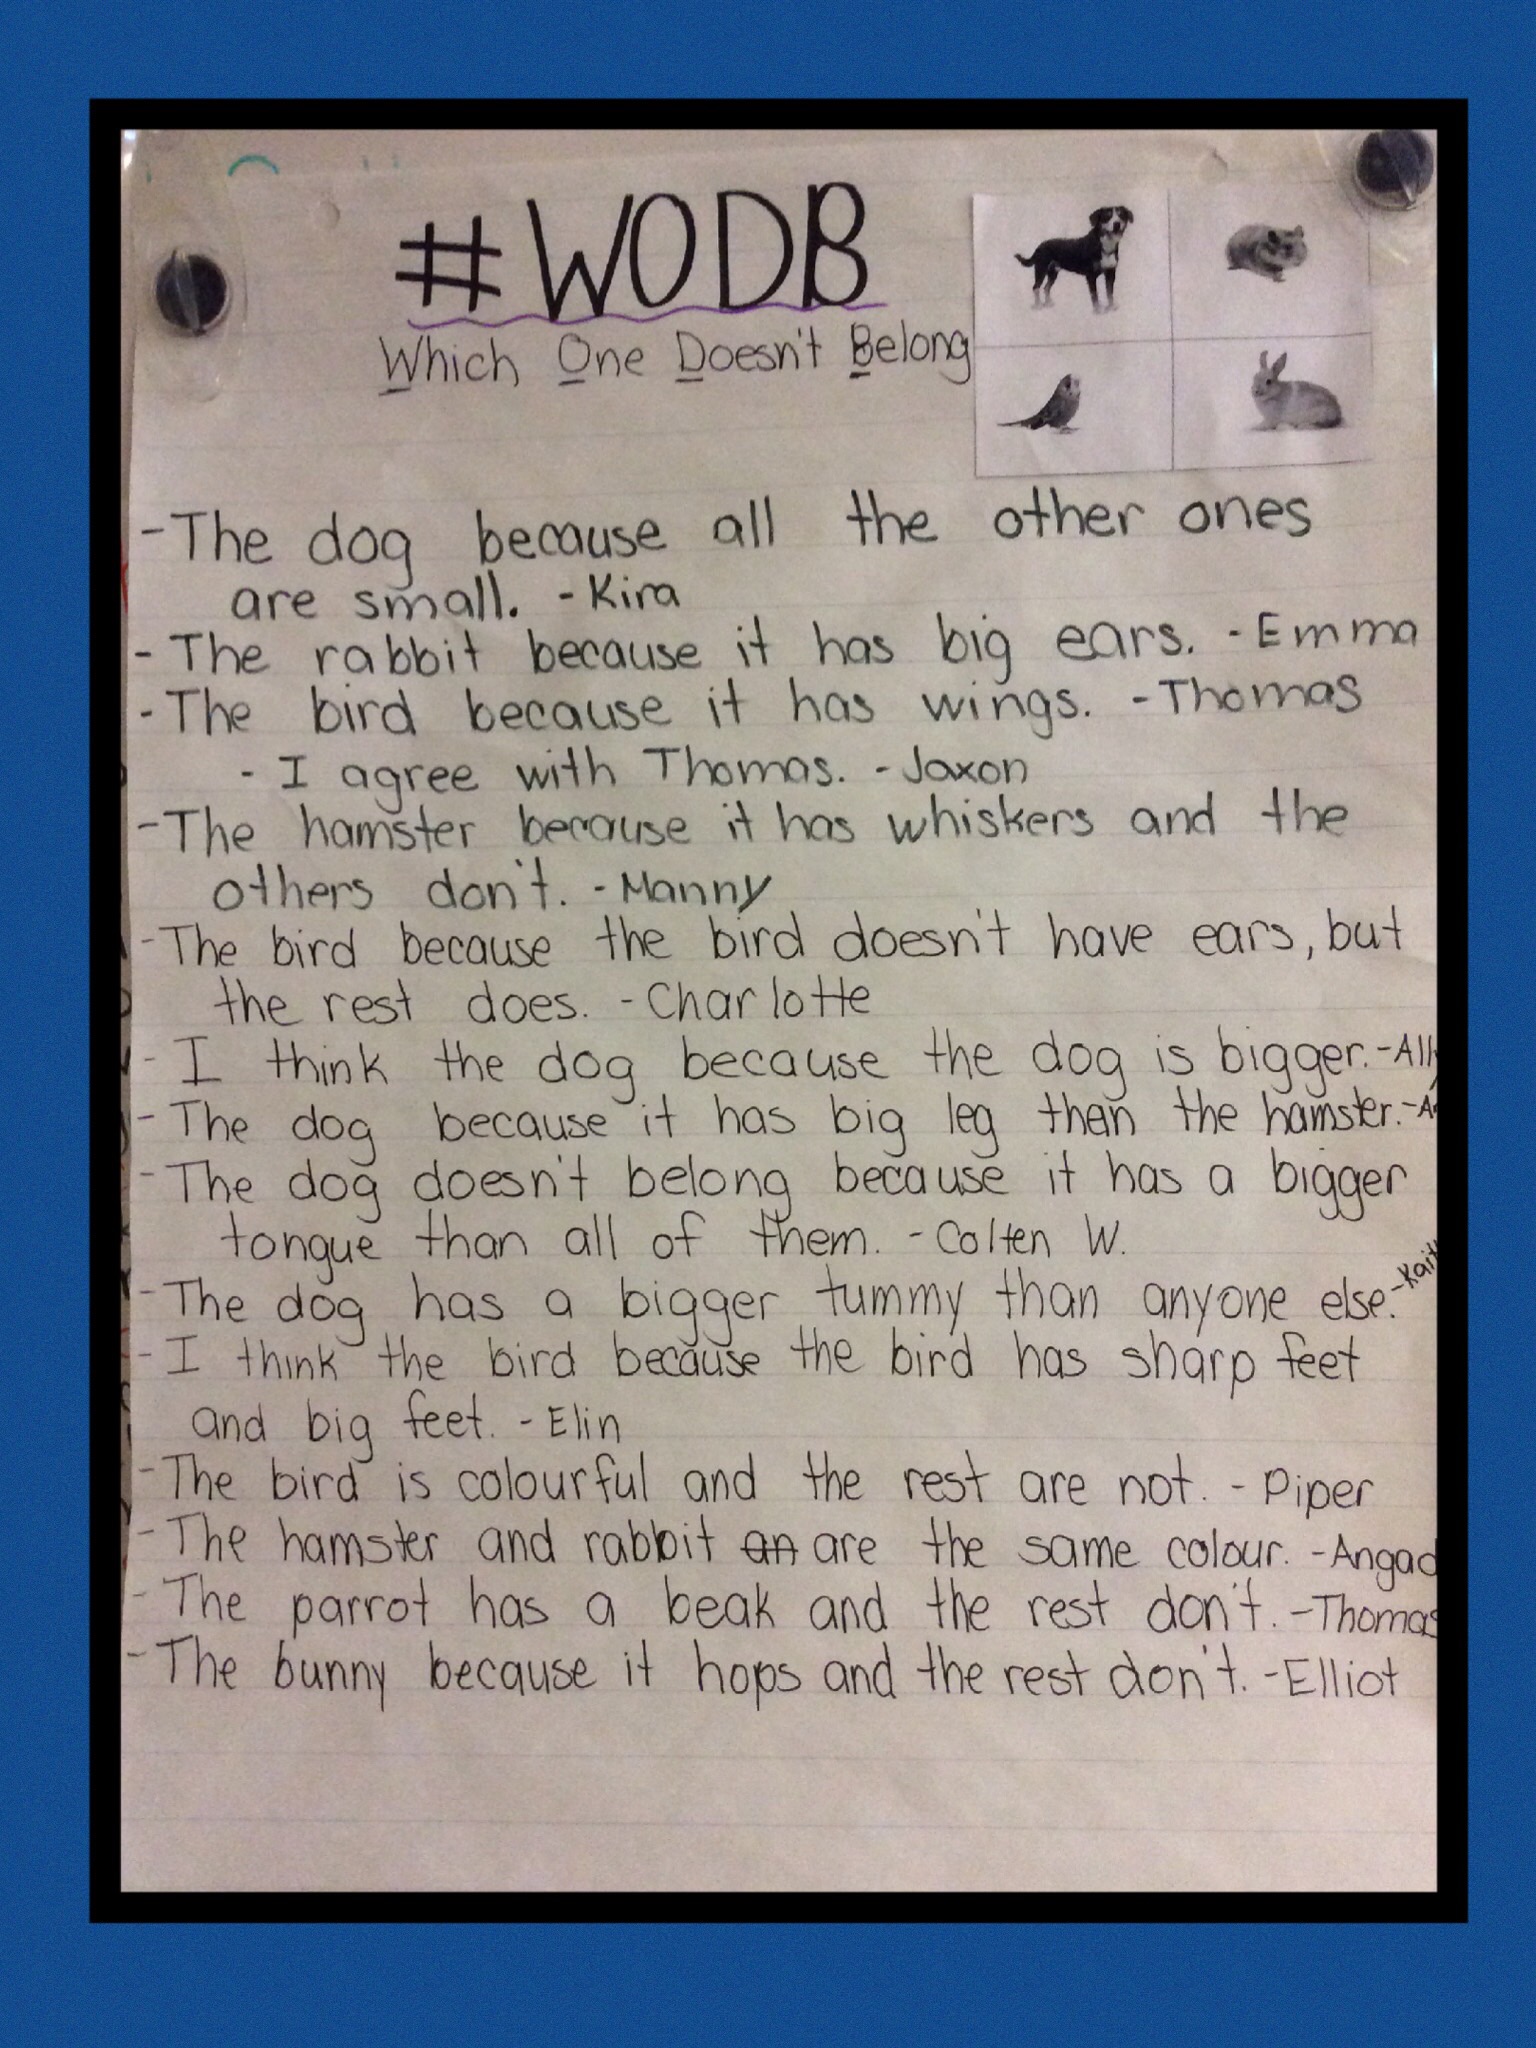 #WODB
Which One Doesn't Belong
-The dog because all the other ones
are small. -Kira
-The rabbit because it has big ears. -Emma
-The bird because it has wings. -Thomas
-I agree with Thomas. -Jaxon
-The hamster because it has whiskers and the
others don't. -Manny
-The bird because the bird doesn't have ears, but
the rest does. -Charlotte
-I think the dog because the dog is bigger.
-The dog because it has big leg than the hamster.
-The dog doesn't belong because it has a bigger
tongue than all of them. -Colten W.
-The dog has a bigger tummy than anyone else.
-I think the bird because the bird has sharp feet
and big feet. -Elin
-The bird is colourful and the rest are not. -Piper
-The hamster and rabbit an are the same colour. -Angad
-The parrot has a beak and the rest don't. -Thomas
-The bunny because it hops and the rest don't. -Elliot